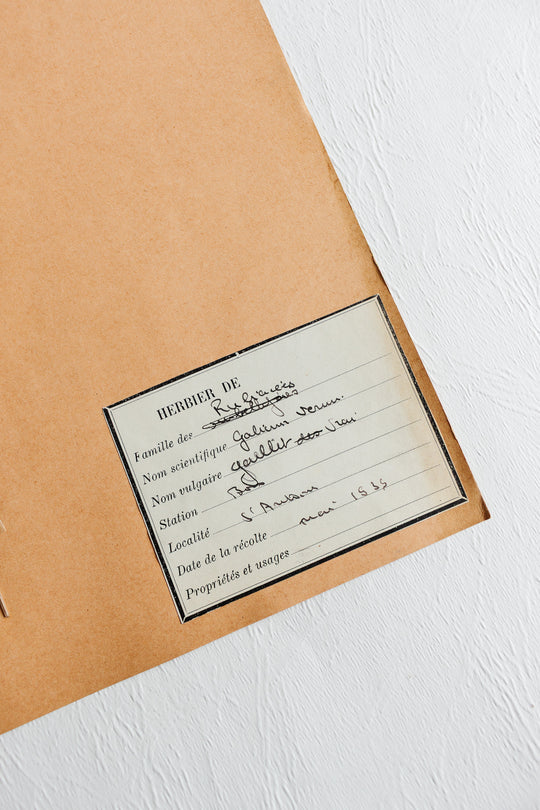 HERBIER DE
Famille des Rubiacées
Nom scientifique Galium verum.
Nom vulgaire gaillet des vrai
Station Bois
Localité St
Date de la récolte mai
Propriétés et usages